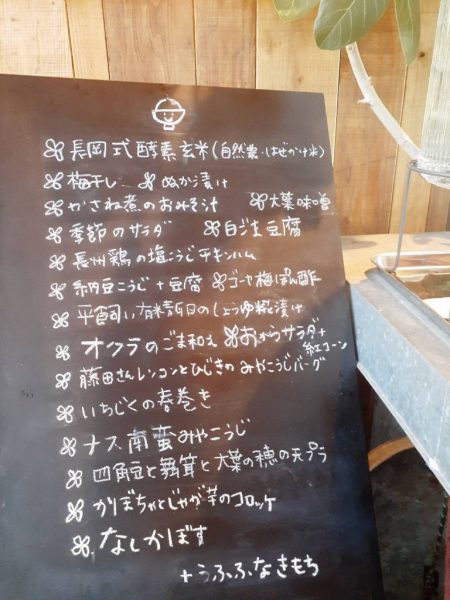 長岡式酵素玄米(自然栗・はぜかけ米)
梅干し ぬか漬け
かさね煮のおみそ汁 大葉味噌
季節のサラダ 自ジ豆腐
長州鶏の塩こうじチキンハム
納豆こうじ+豆腐 ゴーヤ梅ぽん酢
平飼い有精卵のしょうゆ糀漬け
オクラのごま和え おからサラダ+紅コーン
藤田さんレンコンとひじきのみやこうじバーグ
いちじくの春巻き
ナス南蛮みやこうじ
四角豆と舞茸と大葉の穂の天プラ
かぼちゃとじゃが芋のコロッケ
なしかぼす
+うふふなきもち